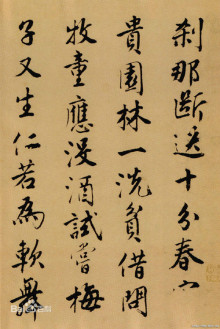 刹那斷送十分春
貴園林一洗貧借問
牧童應沒酒試嘗梅
子又生仁若為軟舞